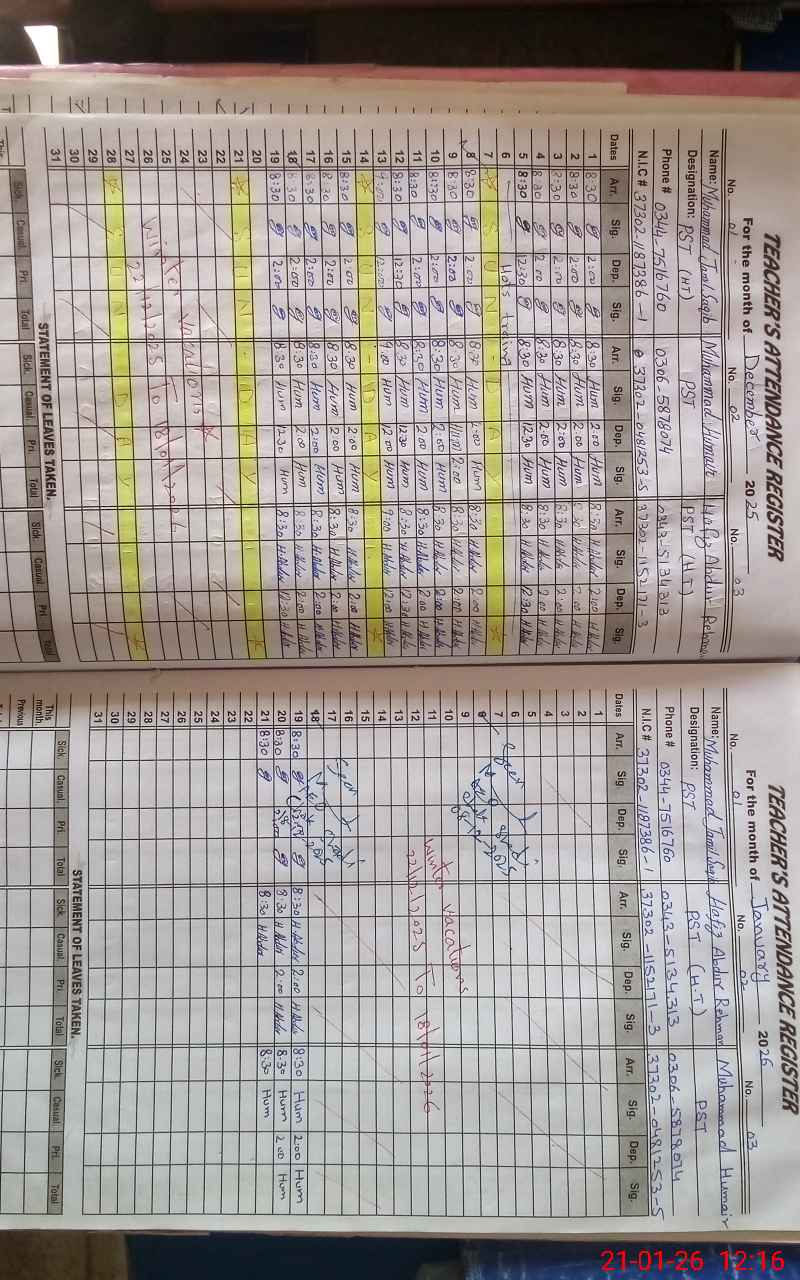 TEACHER'S ATTENDANCE REGISTER
For the month of December 2025
No. 01 No. 02 No. 03
Name: Muhammad Jamil Saqib Muhammad Humair Hafiz Abdur Rehman
Designation: PST (HT) PST PST (H.T)
Phone # 0344-7516760 0306-5878074 0343-5134313
N.I.C # 37302-1187386-1 37302-0481253-5 37302-1152171-3
Dates Arr. Sig. Dep. Sig. Arr. Sig. Dep. Sig. Arr. Sig. Dep. Sig.
1 8:30 2:00 8:30 Hum 2:00 Hum 8:30 H.Abdur 2:00 H.Abdur
2 8:30 2:00 8:30 Hum 2:00 Hum 8:30 H.Abdur 2:00 H.Abdur
3 8:30 2:00 8:30 Hum 2:00 Hum 8:30 H.Abdur 2:00 H.Abdur
4 8:30 2:00 8:30 Hum 2:00 Hum 8:30 H.Abdur 2:00 H.Abdur
5 8:30 12:30 8:30 Hum 12:30 Hum 8:30 H.Abdur 12:30 H.Abdur
6 training
7 SUNDAY
8 8:30 2:00 8:30 Hum 2:00 Hum 8:30 H.Abdur 2:00 H.Abdur
9 8:30 2:00 8:30 Hum 2:00 8:30 H.Abdur 2:00 H.Abdur
10 8:30 2:00 8:30 Hum 2:00 Hum 8:30 H.Abdur 2:00 H.Abdur
11 8:30 2:00 8:30 Hum 2:00 Hum 8:30 H.Abdur 2:00 H.Abdur
12 8:30 12:30 8:30 Hum 12:30 Hum 8:30 H.Abdur 12:30 H.Abdur
13 9:00 12:00 9:00 Hum 12:00 Hum 9:00 H.Abdur 12:00 H.Abdur
14 SUN-DAY
15 8:30 2:00 8:30 Hum 2:00 Hum 8:30 H.Abdur 2:00 H.Abdur
16 8:30 2:00 8:30 Hum 2:00 Hum 8:30 H.Abdur 2:00 H.Abdur
17 8:30 2:00 8:30 Hum 2:00 Hum 8:30 H.Abdur 2:00 H.Abdur
18 8:30 2:00 8:30 Hum 2:00 Hum 8:30 H.Abdur 2:00 H.Abdur
19 8:30 2:00 8:30 Hum 12:30 Hum 8:30 H.Abdur 12:30 H.Abdur
20
21 SUN-DAY
22
23
24
25 Winter vacations
26 22/12/2025 To 18/01/2026
27
28 SUNDAY
29
30
31
STATEMENT OF LEAVES TAKEN.
Sick. Casual. Pri. Total Sick. Casual. Pri. Total Sick. Casual. Pri. Total
This
TEACHER'S ATTENDANCE REGISTER
For the month of January 2026
No. 01 No. 02 No. 03
Name: Muhammad Jamil Saqib Hafiz Abdur Rehman Muhammad Humair
Designation: PST PST (H.T) PST
Phone # 0344-7516760 0343-5134313 0306-5878074
N.I.C # 37302-1187386-1 37302-1152171-3 37302-0481253-5
Dates Arr. Sig Dep. Sig. Arr. Sig. Dep. Sig. Arr. Sig. Dep. Sig.
1
2
3
4
5
6
7
8
9
10 Winter vacations
11
12 22/12/2025 To 18/01/2026
13
14
15
16
17
18
19 8:30 8:30 H.Abdur 2:00 H.Abdur 8:30 Hum 2:00 Hum
20 8:30 8:30 H.Abdur 2:00 H.Abdur 8:30 Hum 2:00 Hum
21 8:30 8:30 H.Abdur 8:30 Hum
22
23
24
25
26
27
28
29
30
31
STATEMENT OF LEAVES TAKEN.
Sick. Casual. Pri. Total Sick. Casual. Pri. Total Sick. Casual. Pri. Total
This month.
Previous
21-01-26 12:16